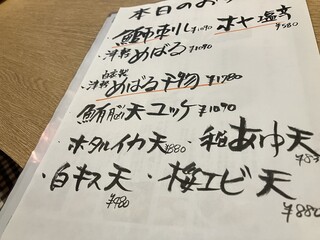 本日のお
・鰤刺し ¥1090 ・ホヤ塩辛 ¥580
・津軽めばる ¥1090
自家製
・津軽めばる干物 ¥1780
・鮪脳天ユッケ ¥1090
・ホタルイカ天 ¥880 ・稚あゆ天
・白キス天 ¥980 ・桜エビ天 ¥880